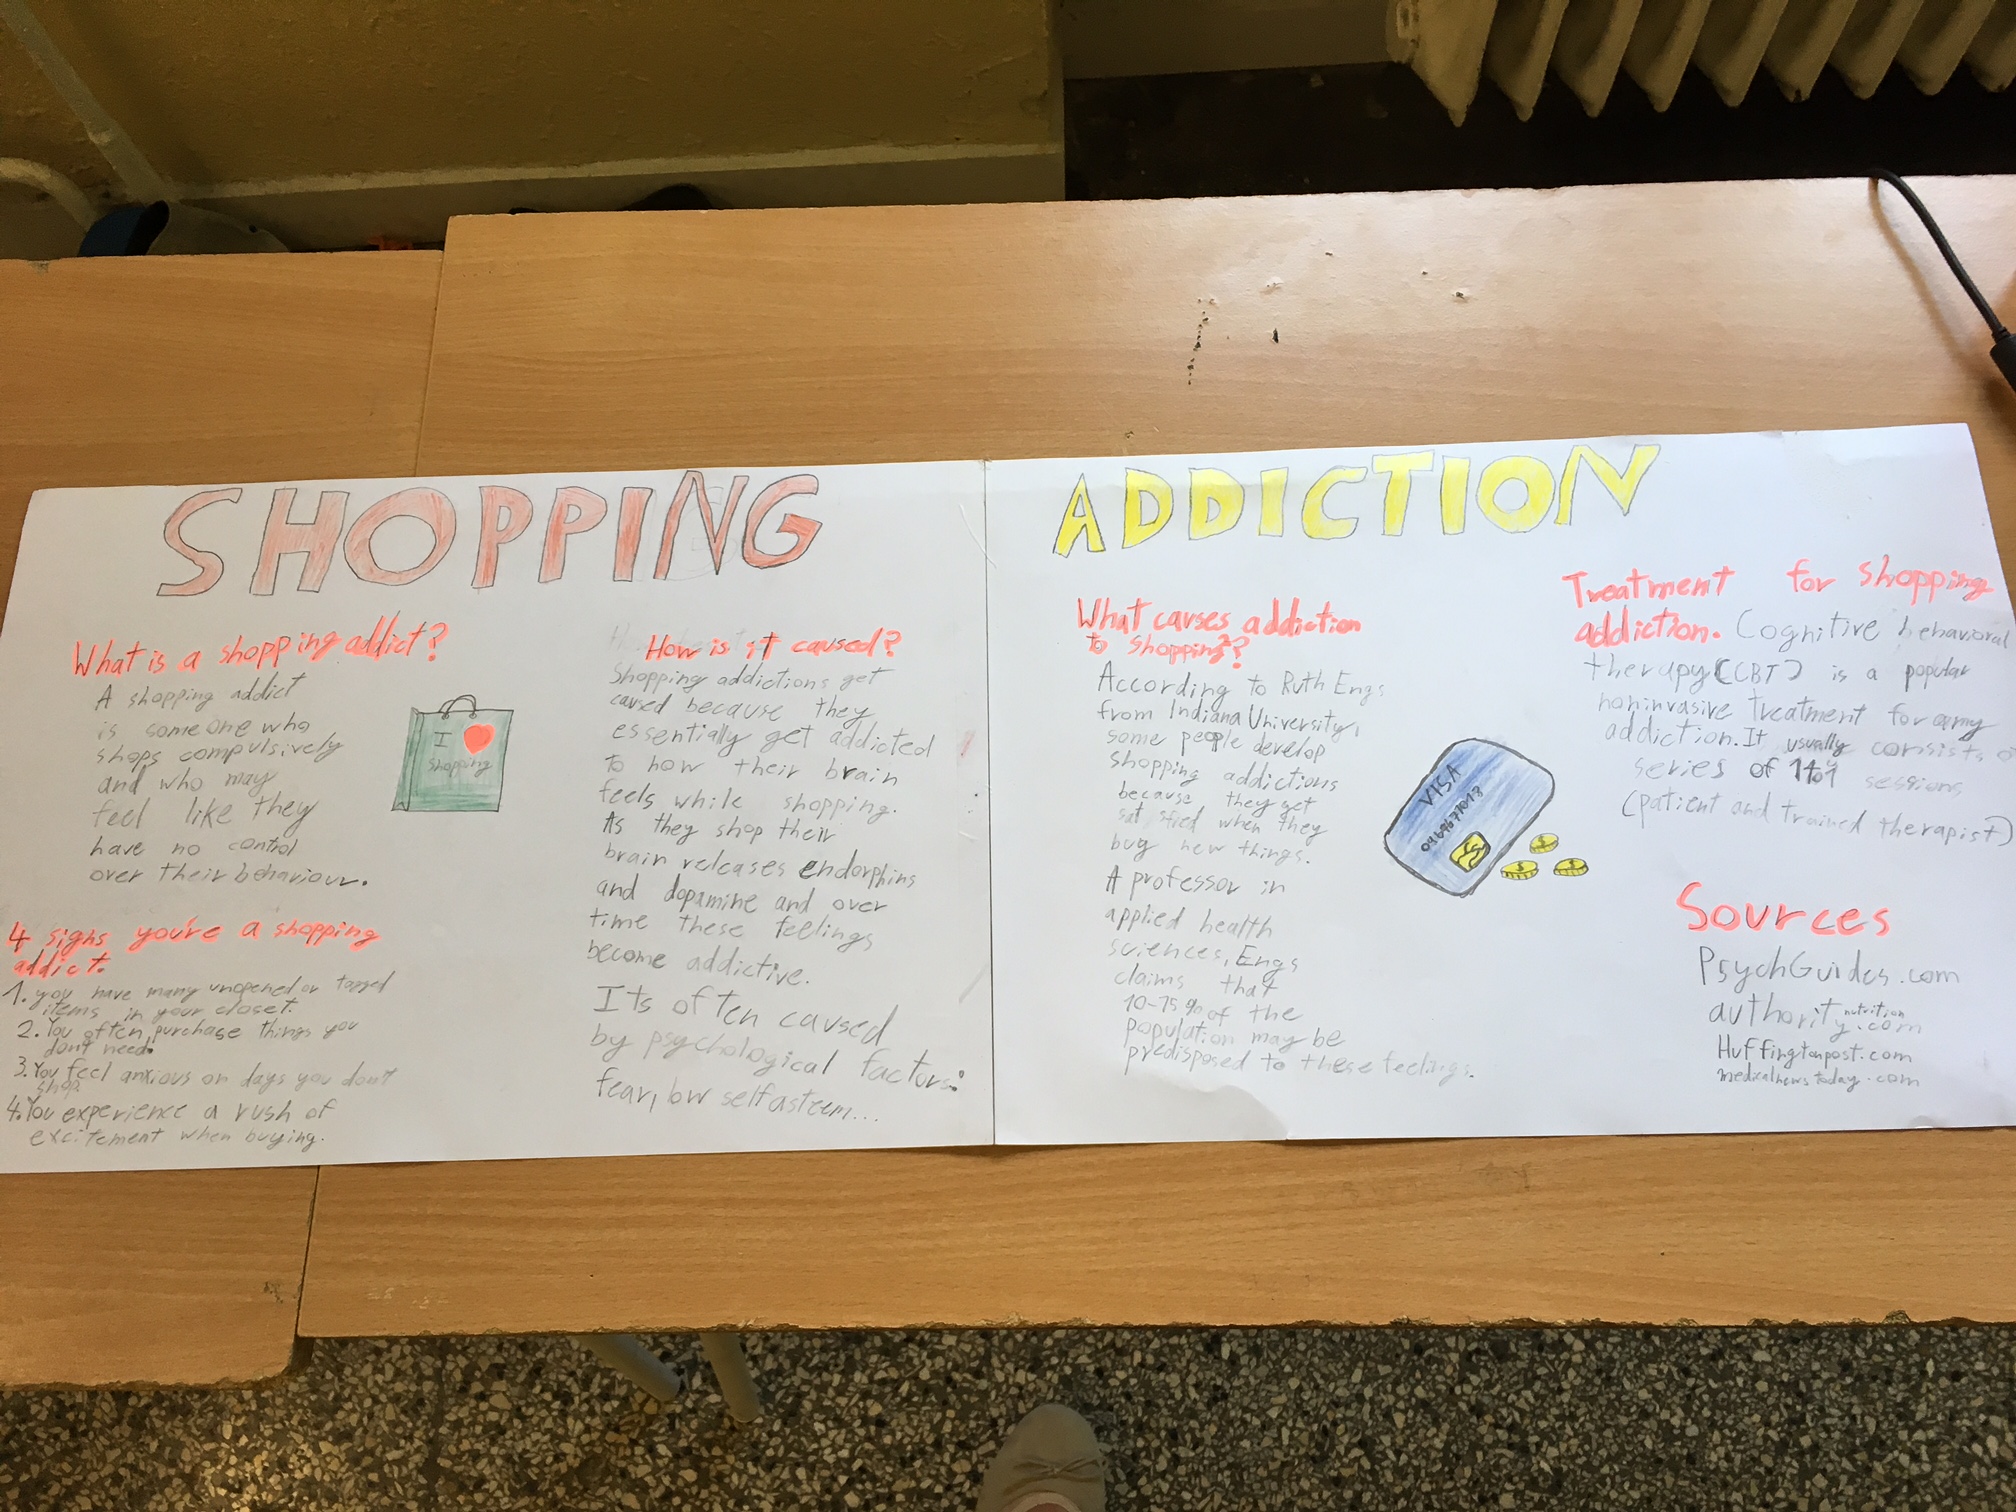 SHOPPING ADDICTION
What is a shopping addict?
A shopping addict
is someone who
shops compulsively
and who may
feel like they
have no control
over their behaviour.
I ♥
shopping
4 signs you're a shopping
addict.
1. you have many unopened or tagged
items in your closet.
2. You often purchase things you
dont need.
3. You feel anxious on days you don't
shop.
4. You experience a rush of
excitement when buying.
How is it caused?
Shopping addictions get
caused because they
essentially get addicted
to how their brain
feels while shopping.
As they shop their
brain releases endorphins
and dopamine and over
time these feelings
become addictive.
Its often caused
by psychological factors:
fear, low selfasteem...
What causes addiction
to shopping?
According to Ruth Engs
from Indiana University,
some people develop
shopping addictions
because they get
satisfied when they
bug new things.
A professor in
applied health
sciences, Engs
claims that
10-15% of the
population may be
predisposed to these feelings.
VISA
Treatment for shopping
addiction. Cognitive behavioral
therapy (CBT) is a popular
noninvasive treatment for any
addiction. It usually consists of
series of 1to1 sessions
(patient and trained therapist)
Sources
PsychGuides.com
authority nutrition.com
Huffingtonpost.com
medicalnewstoday.com